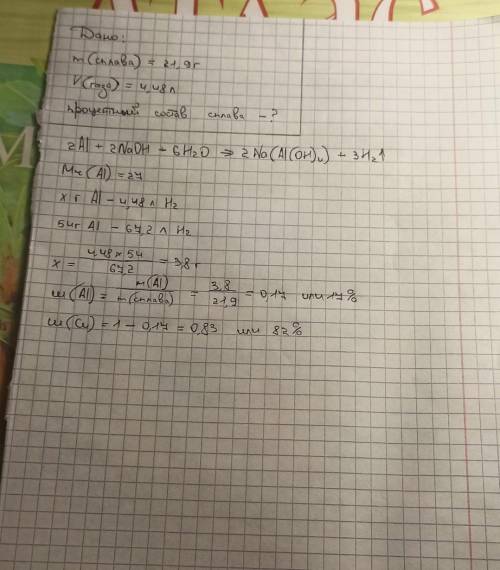 Дано:
m(сплава) = 21,9 г
V(газа) = 4,48 л
процентный состав сплава - ?
2Al + 2NaOH + 6H₂O ⇒ 2Na(Al(OH)₄) + 3H₂↑
Mr(Al) = 27
x г Al - 4,48 л H₂
54г Al - 67,2 л H₂
x = 4,48×54 / 67,2 = 3,8 г
ω(Al) = m(Al) / m(сплава) = 3,8 / 21,9 = 0,17 или 17%
ω(Cu) = 1 - 0,17 = 0,83 или 82%